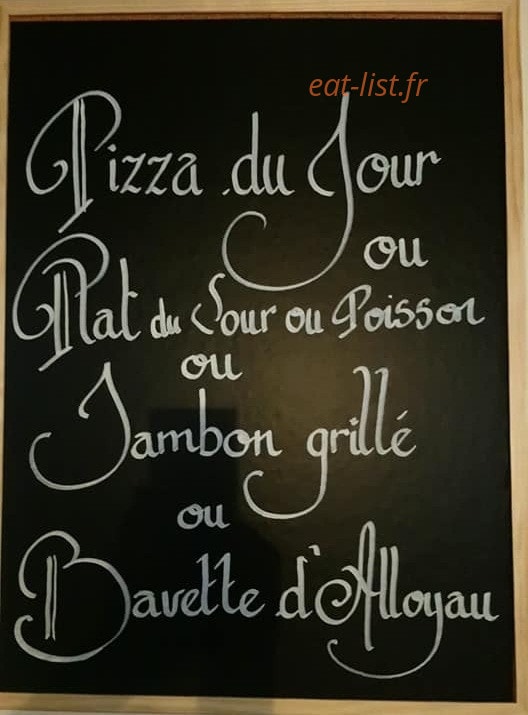 eat-list.fr
Pizza du Jour
ou
Plat du Jour ou Poisson
ou
Jambon grillé
ou
Bavette d'Alloyau